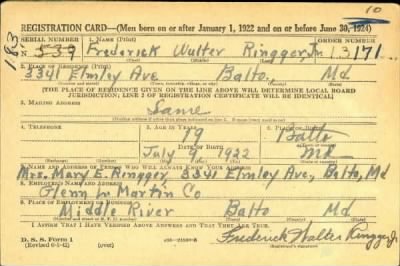 10
REGISTRATION CARD—(Men born on or after January 1, 1922 and on or before June 30, 1924)
SERIAL NUMBER 1. NAME (Print) ORDER NUMBER
N 539 Frederick Walter Ringger, Jr. 13171
(First) (Middle) (Last)
2. PLACE OF RESIDENCE (Print)
3341 Elmley Ave Balto, Md.
(Number and street) (Town, township, village, or city) (County) (State)
[THE PLACE OF RESIDENCE GIVEN ON THE LINE ABOVE WILL DETERMINE LOCAL BOARD
JURISDICTION; LINE 2 OF REGISTRATION CERTIFICATE WILL BE IDENTICAL]
3. MAILING ADDRESS
Same
[Mailing address if other than place indicated on line 2. If same insert word same]
4. TELEPHONE 5. AGE IN YEARS 6. PLACE OF BIRTH
19 Balto
DATE OF BIRTH
July 9, 1922 Md.
7. NAME AND ADDRESS OF PERSON WHO WILL ALWAYS KNOW YOUR ADDRESS
Mrs. Mary E. Ringger, 3341 Elmley Ave, Balto, Md
8. EMPLOYER'S NAME AND ADDRESS
Glenn L. Martin Co
9. PLACE OF EMPLOYMENT OR BUSINESS
Middle River Balto Md.
(Number and street or R. F. D. number) (Town) (County) (State)
I AFFIRM THAT I HAVE VERIFIED ABOVE ANSWERS AND THAT THEY ARE TRUE.
D. S. S. Form 1
(over) Frederick Walter Ringger Jr.